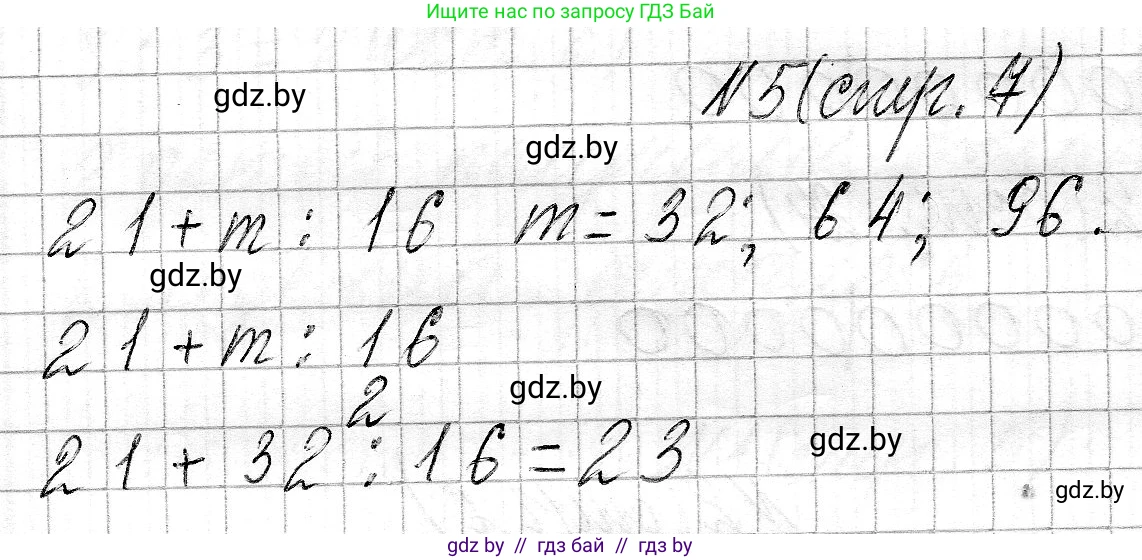 Ищите нас по запросу ГДЗ Бай
gdz.by
№5 (стр. 7)
gdz.by
21 + m : 16 m = 32; 64; 96.
gdz.by
21 + m : 16
gdz.by
2
21 + 32 : 16 = 23
gdz.by
gdz.by
gdz by // гдз бай // гдз by